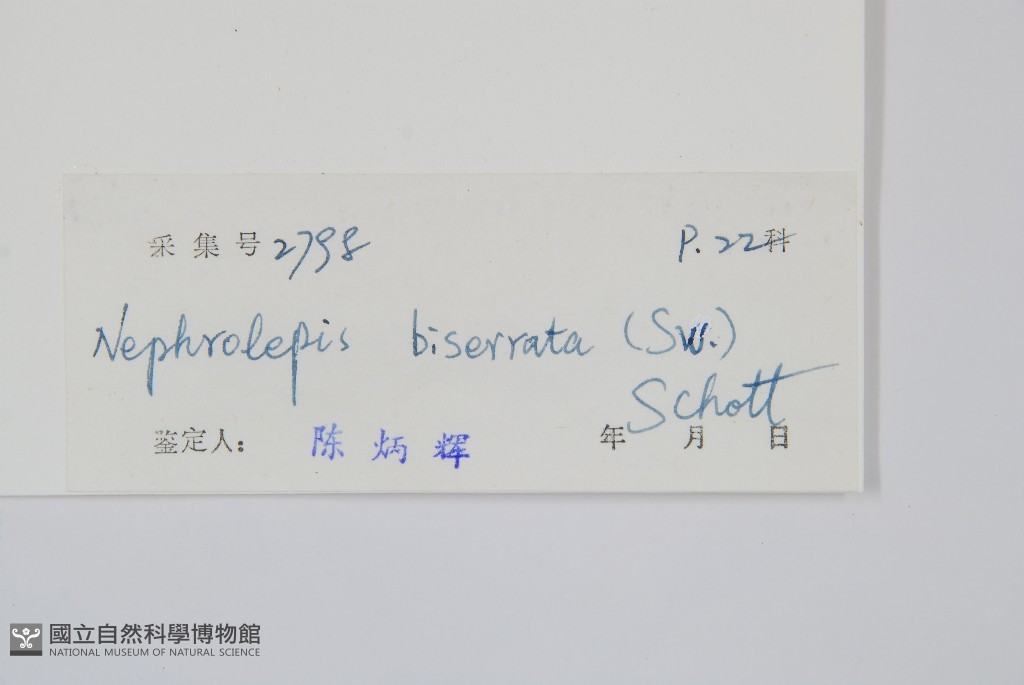 采集号 2798 P.22科
Nephrolepis biserrata (Sw.)
Schott
鉴定人: 陈炳辉 年 月 日
國立自然科學博物館
NATIONAL MUSEUM OF NATURAL SCIENCE